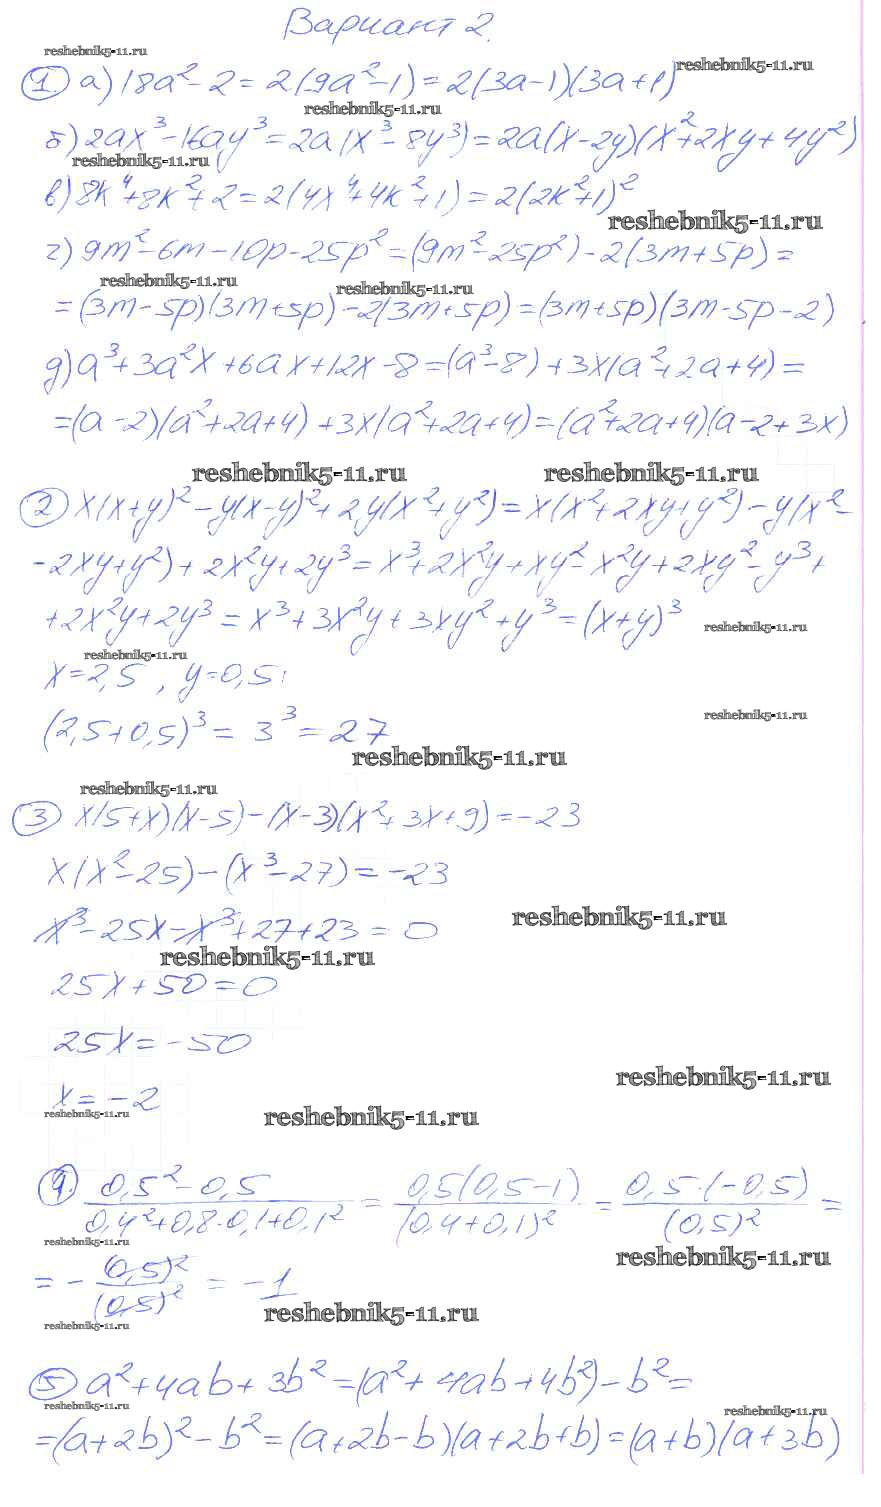 Вариант 2.
reshebnik5-11.ru
reshebnik5-11.ru
1. а) 18a² - 2 = 2(9a² - 1) = 2(3a-1)(3a+1)
reshebnik5-11.ru
б) 2ax³ - 16ay³ = 2a(x³ - 8y³) = 2a(x-2y)(x²+2xy+4y²)
reshebnik5-11.ru
в) 8k⁴+8k²+2 = 2(4x⁴+4k²+1) = 2(2k²+1)²
reshebnik5-11.ru
г) 9m² - 6m - 10p - 25p² = (9m² - 25p²) - 2(3m+5p) =
reshebnik5-11.ru
reshebnik5-11.ru
= (3m-5p)(3m+5p) - 2(3m+5p) = (3m+5p)(3m-5p-2)
д) a³+3a²x+6ax+12x-8 = (a³-8)+3x(a²+2a+4) =
= (a-2)(a²+2a+4)+3x(a²+2a+4) = (a²+2a+4)(a-2+3x)
reshebnik5-11.ru
reshebnik5-11.ru
2 x(x+y)² - y(x-y)² + 2y(x²+y²) = x(x²+2xy+y²) - y(x² -
- 2xy+y²) + 2x²y+2y³ = x³+2x²y+xy² - x²y+2xy² - y³ +
+ 2x²y+2y³ = x³+3x²y+3xy²+y³ = (x+y)³
reshebnik5-11.ru
reshebnik5-11.ru
x=2,5, y=0,5:
reshebnik5-11.ru
(2,5+0,5)³ = 3³ = 27
reshebnik5-11.ru
reshebnik5-11.ru
3 x(5+x)(x-5) - (x-3)(x²+3x+9) = -23
x(x²-25) - (x³-27) = -23
reshebnik5-11.ru
x³ - 25x - x³+27+23 = 0
reshebnik5-11.ru
25x+50=0
25x=-50
reshebnik5-11.ru
x=-2
reshebnik5-11.ru
reshebnik5-11.ru
4. (0,5² - 0,5)/(0,4²+0,8·0,1+0,1²) = (0,5(0,5-1))/((0,4+0,1)²) = (0,5·(-0,5))/((0,5)²) =
reshebnik5-11.ru
reshebnik5-11.ru
= - (0,5)²/(0,5)² = -1
reshebnik5-11.ru
reshebnik5-11.ru
5 a²+4ab+3b² = (a²+4ab+4b²) - b² =
reshebnik5-11.ru
reshebnik5-11.ru
= (a+2b)² - b² = (a+2b-b)(a+2b+b) = (a+b)(a+3b)